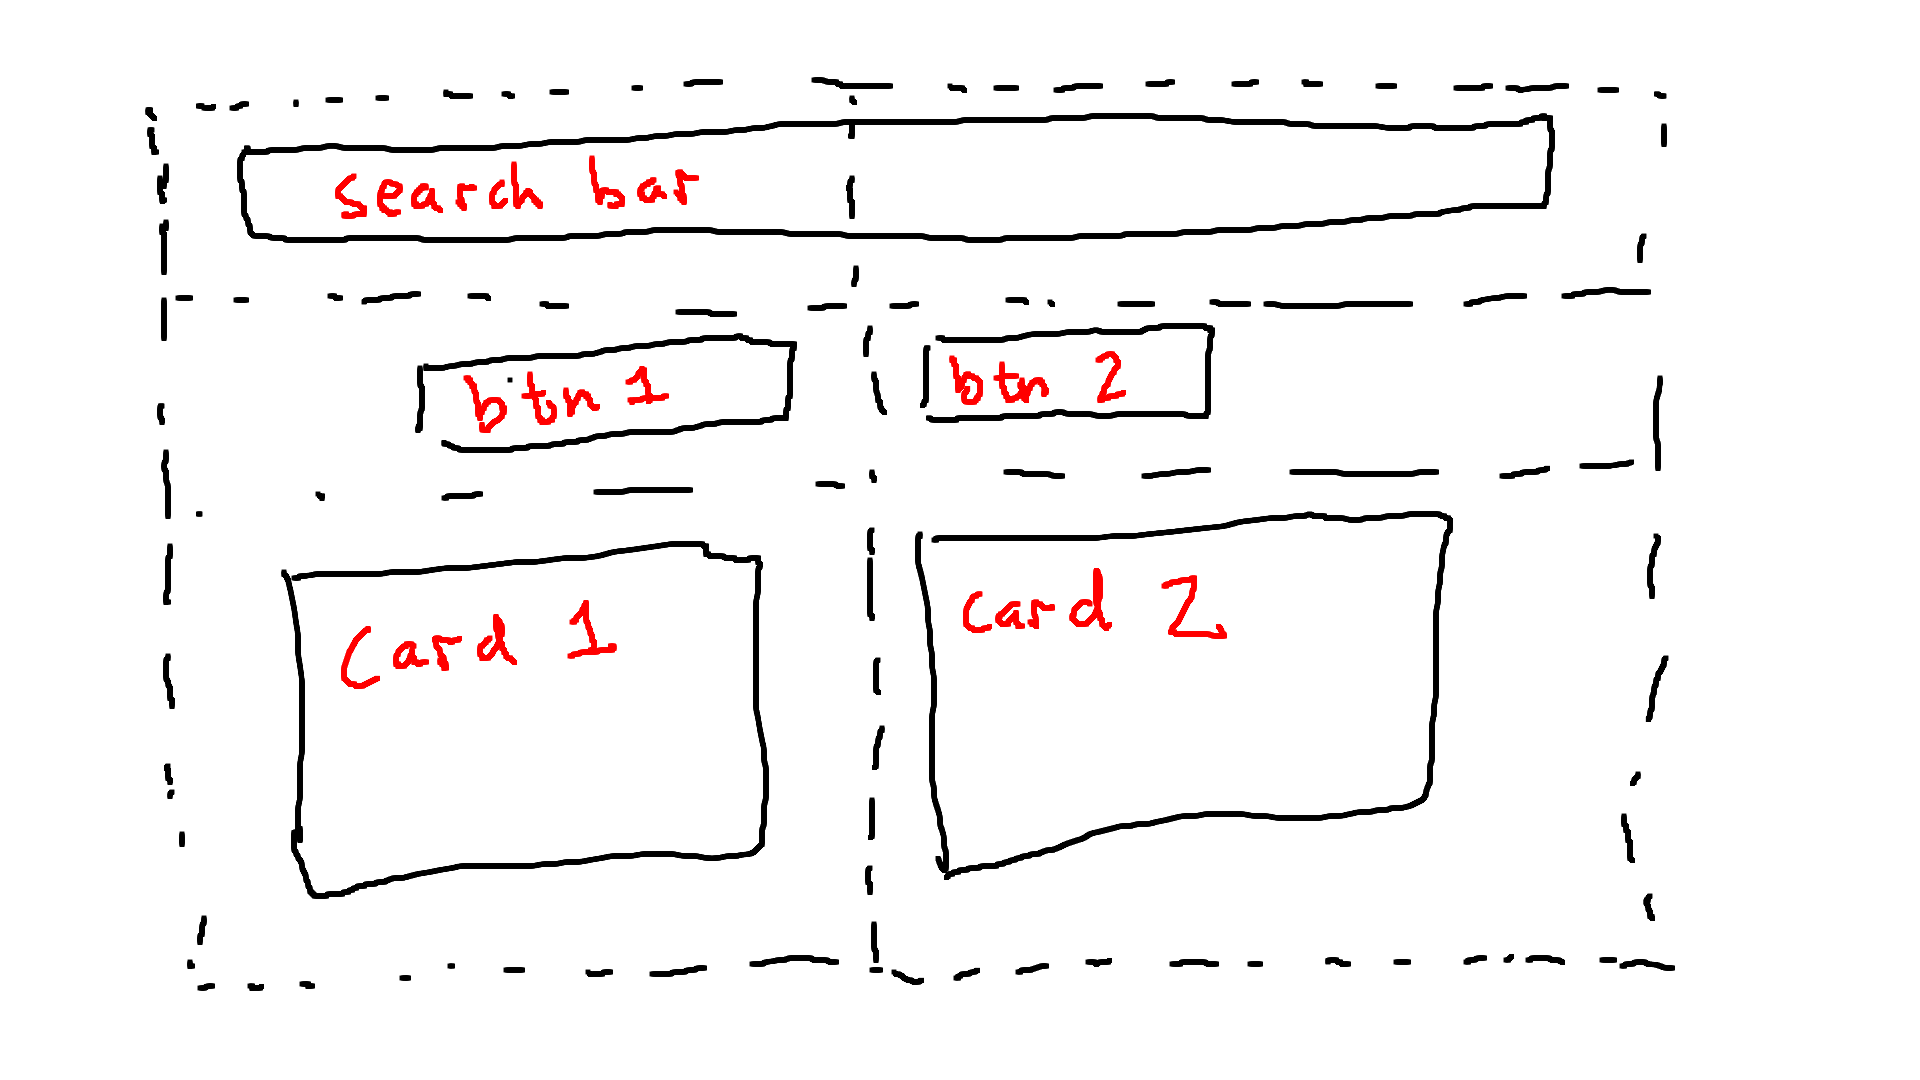 search bar
btn 1
btn 2
Card 1
card 2